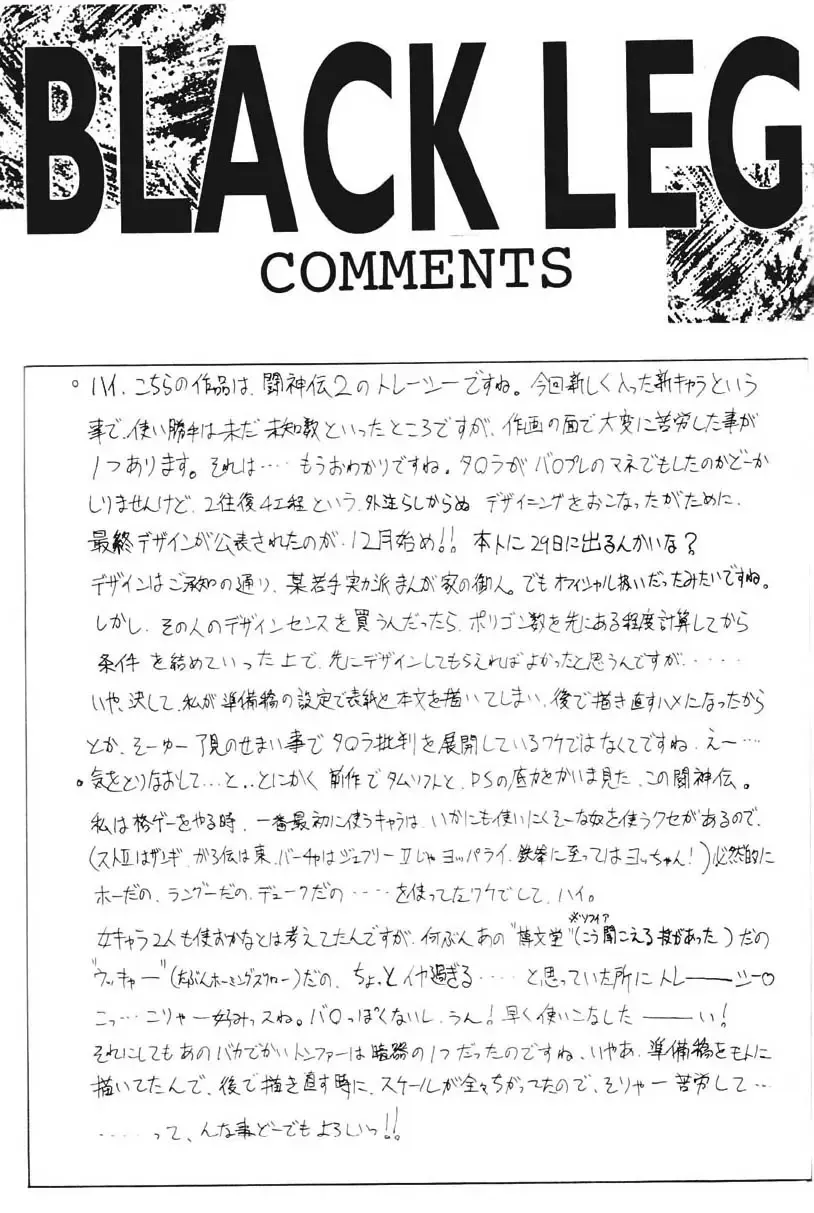 BLACK LEG
COMMENTS
。ハイ、こちらの作品は、闘神伝2のトレーシーですね。今回新しく入った新キャラという
事で、使い勝手は未だ未知数といったところですが、作画の面で大変に苦労した事が
1つあります。それは‥‥もうおわかりですね。タロラがバロプレのマネでもしたのかどーか
しりませんけど、2往復4工程という、外注らしからぬ デザイニングをおこなったがために、
最終デザインが公表されたのが、12月始め!! 本トに29日に出るんかいな?
デザインはご承知の通り、某若手実力派まんが家の御人。でもオフィシャル扱いだったみたいですね。
しかし、その人のデザインセンスを買うんだったら、ポリゴン数を先にある程度計算してから
条件を結めていった上で、先にデザインしてもらえればよかったと思うんですが、‥‥‥
いや、決して、私が準備稿の設定で表紙と本文を描いてしまい、後で描き直すハメになったから
とか、そーゆー了見のせまい事でタロラ批判を展開しているワケではなくてですね、えー‥‥
・気をとりなおして‥と‥とにかく 前作でタムソフトと、PSの底力をかいま見た、この闘神伝。
私は格ゲーをやる時、一番最初に使うキャラは、いかにも使いにくそーな奴を使うクセがあるので、
(ストIIはザンギ、がろ伝は東、バーチャはジェフリー IIじゃヨッパライ、鉄拳に至ってはヨッちゃん!)必然的に
ホーだの、ラングーだの、デュークだの‥‥を使ってたワケでして、ハイ。
女キャラ2人も使おかなとは考えてたんですが、何ぶんあの"博文堂"(※ソフィア こう聞こえる技があった)だの
"ウッキャー"(たぶんホーミングスクロー)だの、ちょっとイヤ過ぎる‥‥‥と思っていた所にトレ――シー○
こっ‥こりゃ一好みっスね。バロっぽくないし、うん!早く使いこなした――い!
それにしてもあのバカでかいトンファーは暗器の1つだったのですね、いやあ、準備稿をモトに
描いてたんで、後で描き直す時に、スケールが全々ちがってたので、そりゃー苦労して‥‥
‥‥‥って、んな事どーでもよろしいっ!!